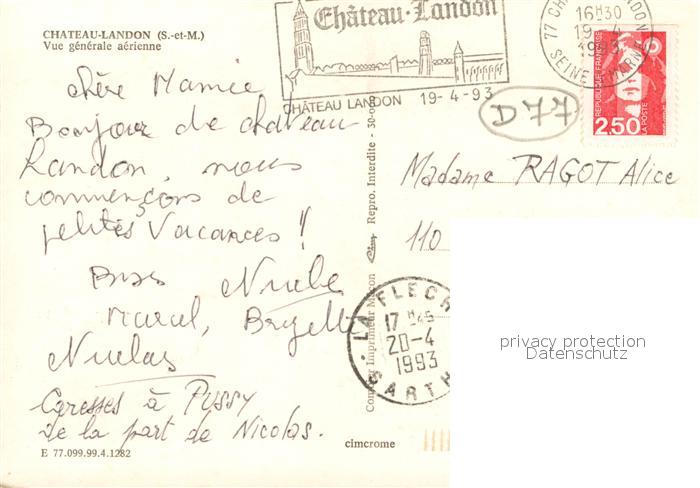 CHATEAU-LANDON (S.-et-M.)
Vue générale aérienne
Château-Landon
CHÂTEAU LANDON 19-4-93
77 CHATEAU LANDON
16H30
19-4
1993
SEINE ET MARNE
REPUBLIQUE FRANÇAISE
2,50
LA POSTE
D77
chère Mamie
Bonjour de chateau
Landon, nous
commençons de
petites vacances !!
Bises
Marcel, Brigitte
Nicolas
Caresses à Pussy
de la part de Nicolas.
Madame RAGOT Alice
110
LA FLECH
17H45
20-4
1993
SARTH
Repro. Interdite - 30-
Imprimeur Macon
privacy protection
Datenschutz
cimcrome
E 77.099.99.4.1282